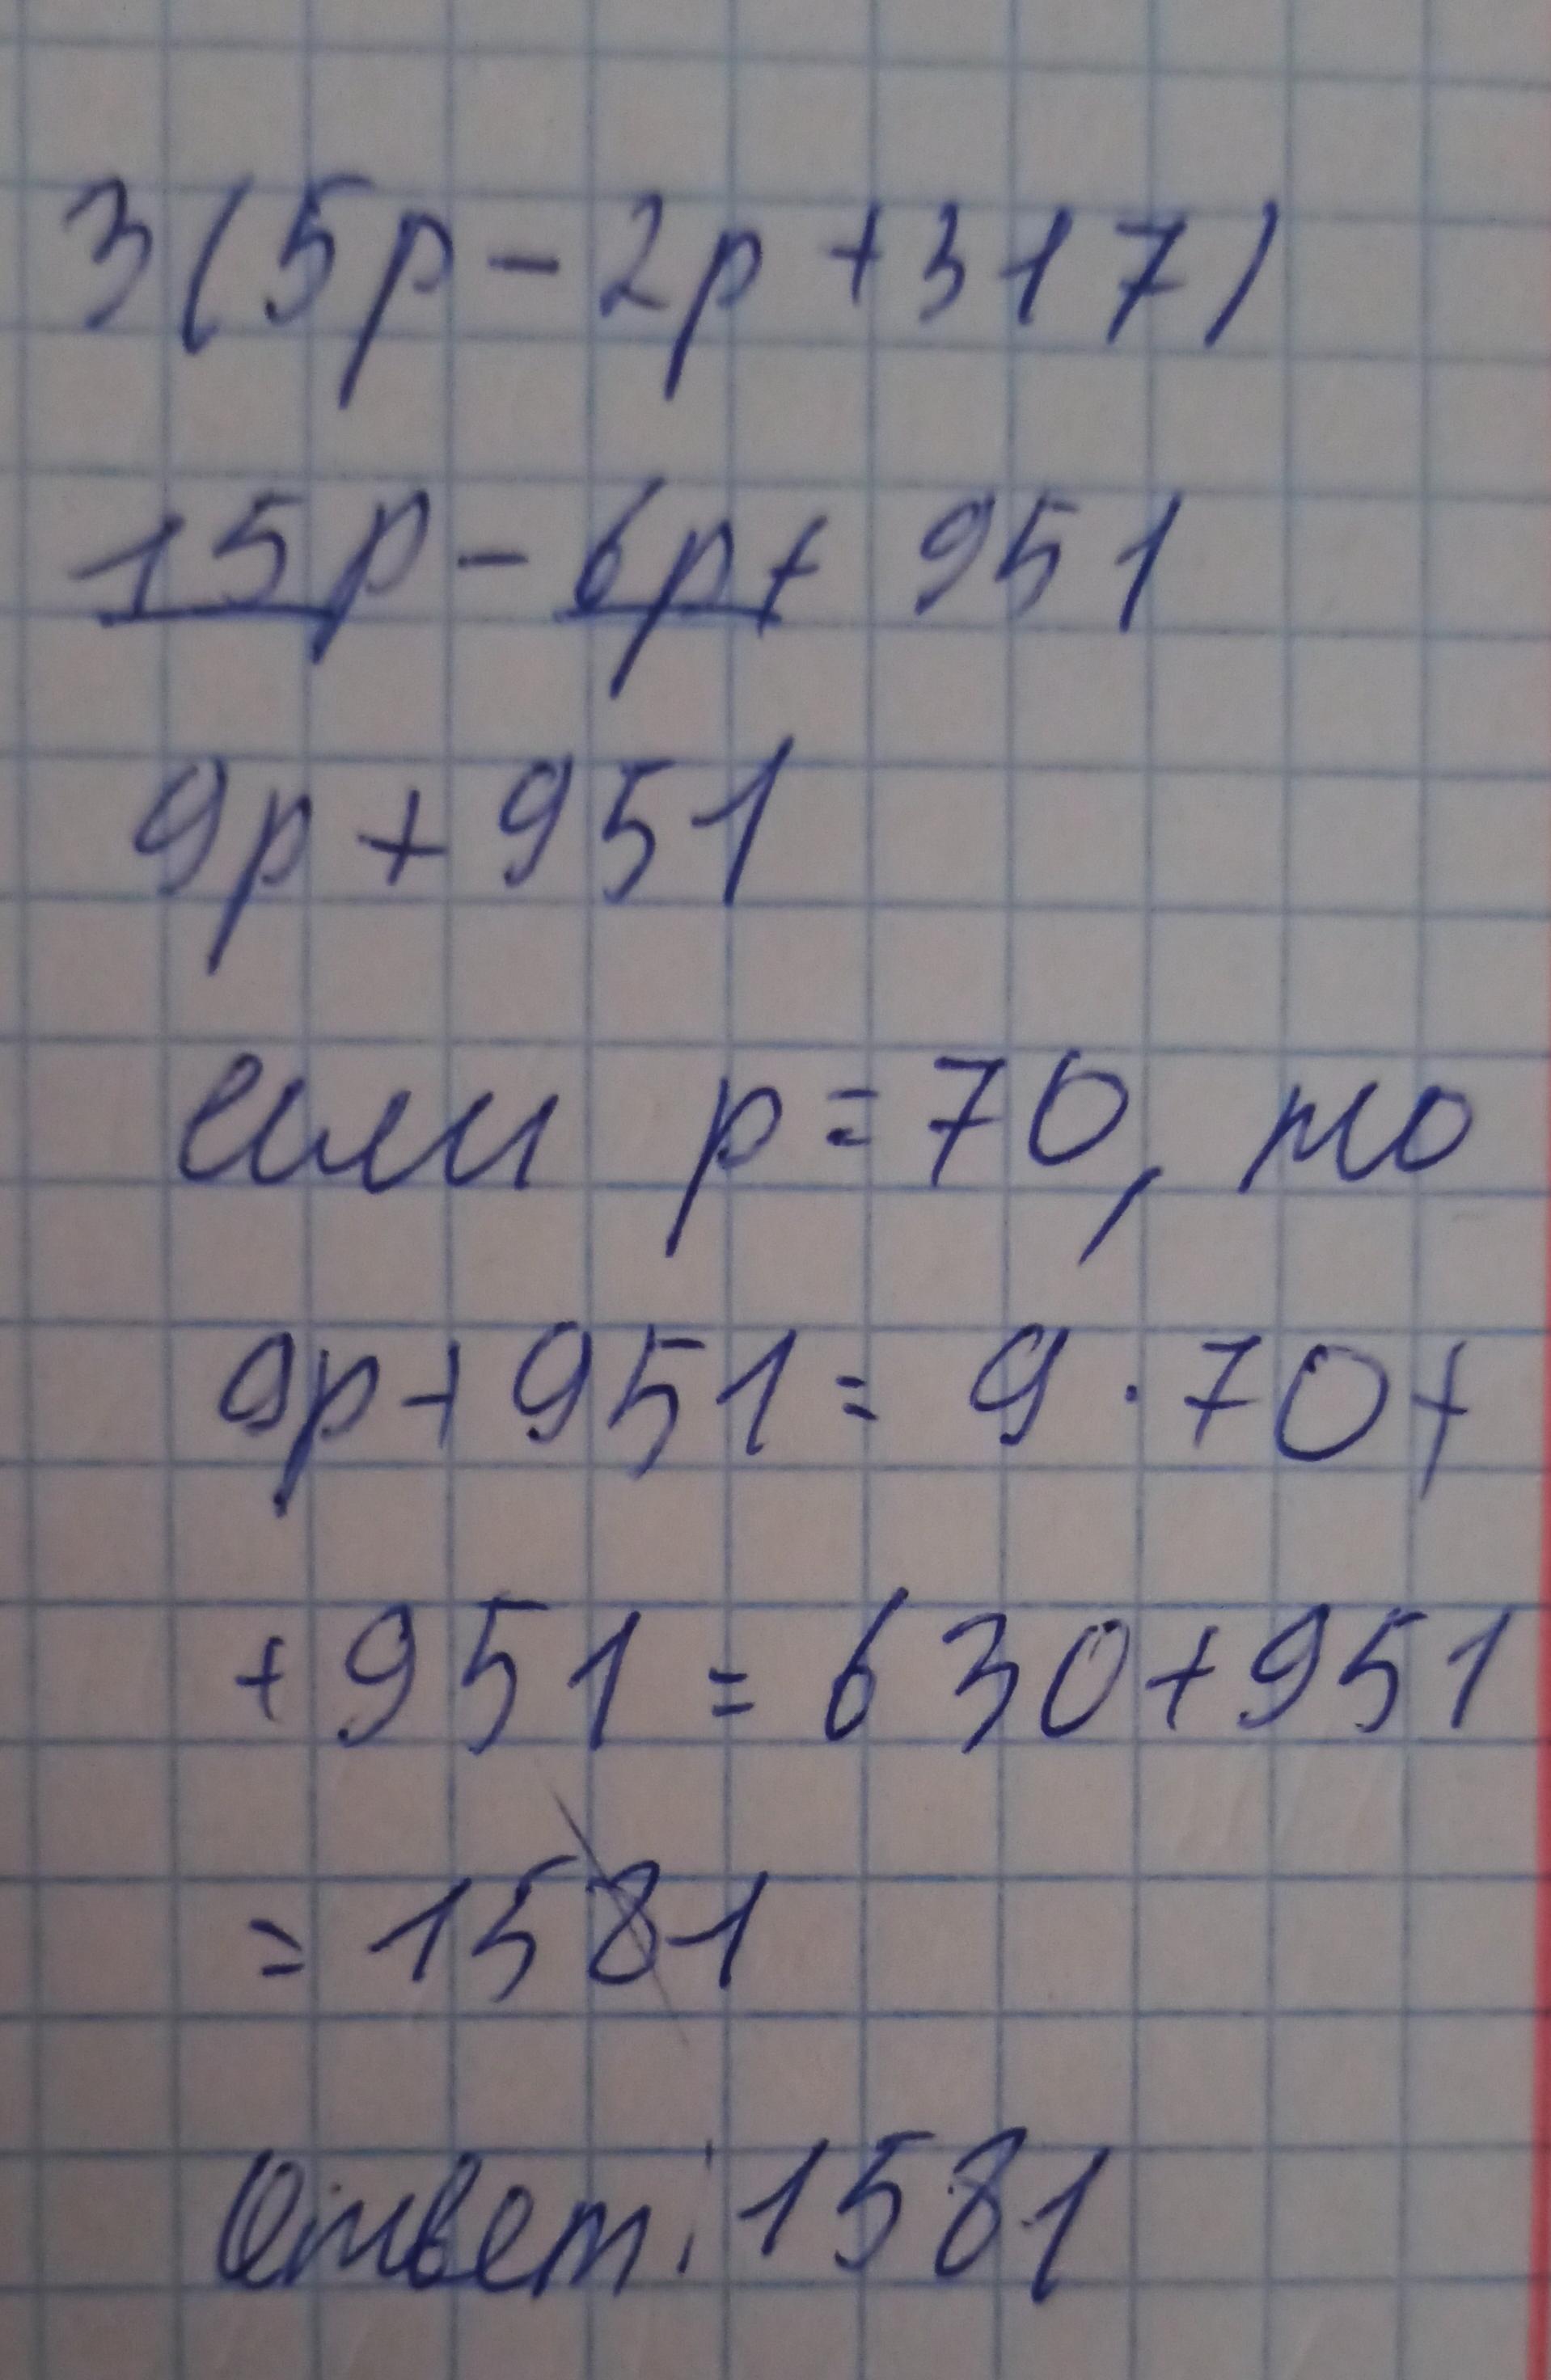 3(5p-2p+317)
15p-6p+ 951
9p+951
если p=70, то
9p+951= 9·70+
+951=630+951
=1581
Ответ: 1581